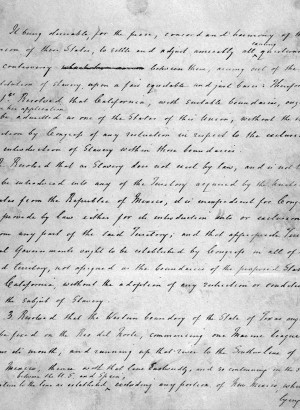 It being desirable, for the peace, concord and harmony of the
Union of these States, to settle and adjust amicably all existing questions
controversy between them, arising out of the
institution of slavery, upon a fair equitable and just basis: Therefore
1st Resolved that California, with suitable boundaries, ought
upon her application
be admitted as one of the States of this Union, without the
by Congress of any restriction in respect to the exclusion
introduction of Slavery within those boundaries.
2. Resolved that as Slavery does not exist by law, and is not
be introduced into any of the Territory acquired by the United
States from the Republic of Mexico, it is inexpedient for Congress
provide by law either for its introduction into or exclusion
from any part of the said Territory; and that appropriate Terri
Governments ought to be established by Congress in all of
said Territory, not assigned as the boundaries of the proposed State
California, without the adoption of any restriction or condition
the subject of Slavery.
3. Resolved that the Western boundary of the State of Texas ought
be fixed on the Rio del Norte, commencing one Marine league
its mouth, and running up that river to the Southern line of
Mexico, thence with that line Eastwardly, and so continuing in the
between the U.S. and Spain,
to the line as established, excluding any portion of New Mexico, whether